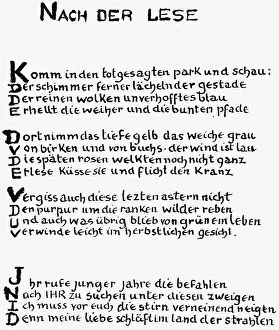 NACH DER LESE
Komm in den totgesagten park und schau:
Der schimmer ferner lächelnder gestade
Der reinen wolken unverhofftes blau
Erhellt die weiher und die bunten pfade
Dort nimm das tiefe gelb das weiche grau
Von birken und von buchs· der wind ist lau
Die späten rosen welkten noch nicht ganz
Erlese küsse sie und flicht den kranz
Vergiss auch diese lezten astern nicht
Den purpur um die ranken wilder reben
Und auch was übrig blieb von grünem leben
Verwinde leicht im herbstlichen gesicht.
Ihr rufe junger jahre die befahlen
Nach IHR zu suchen unter diesen zweigen
Ich muss vor euch die stirn verneinend neigen
Denn meine liebe schläft im land der strahlen